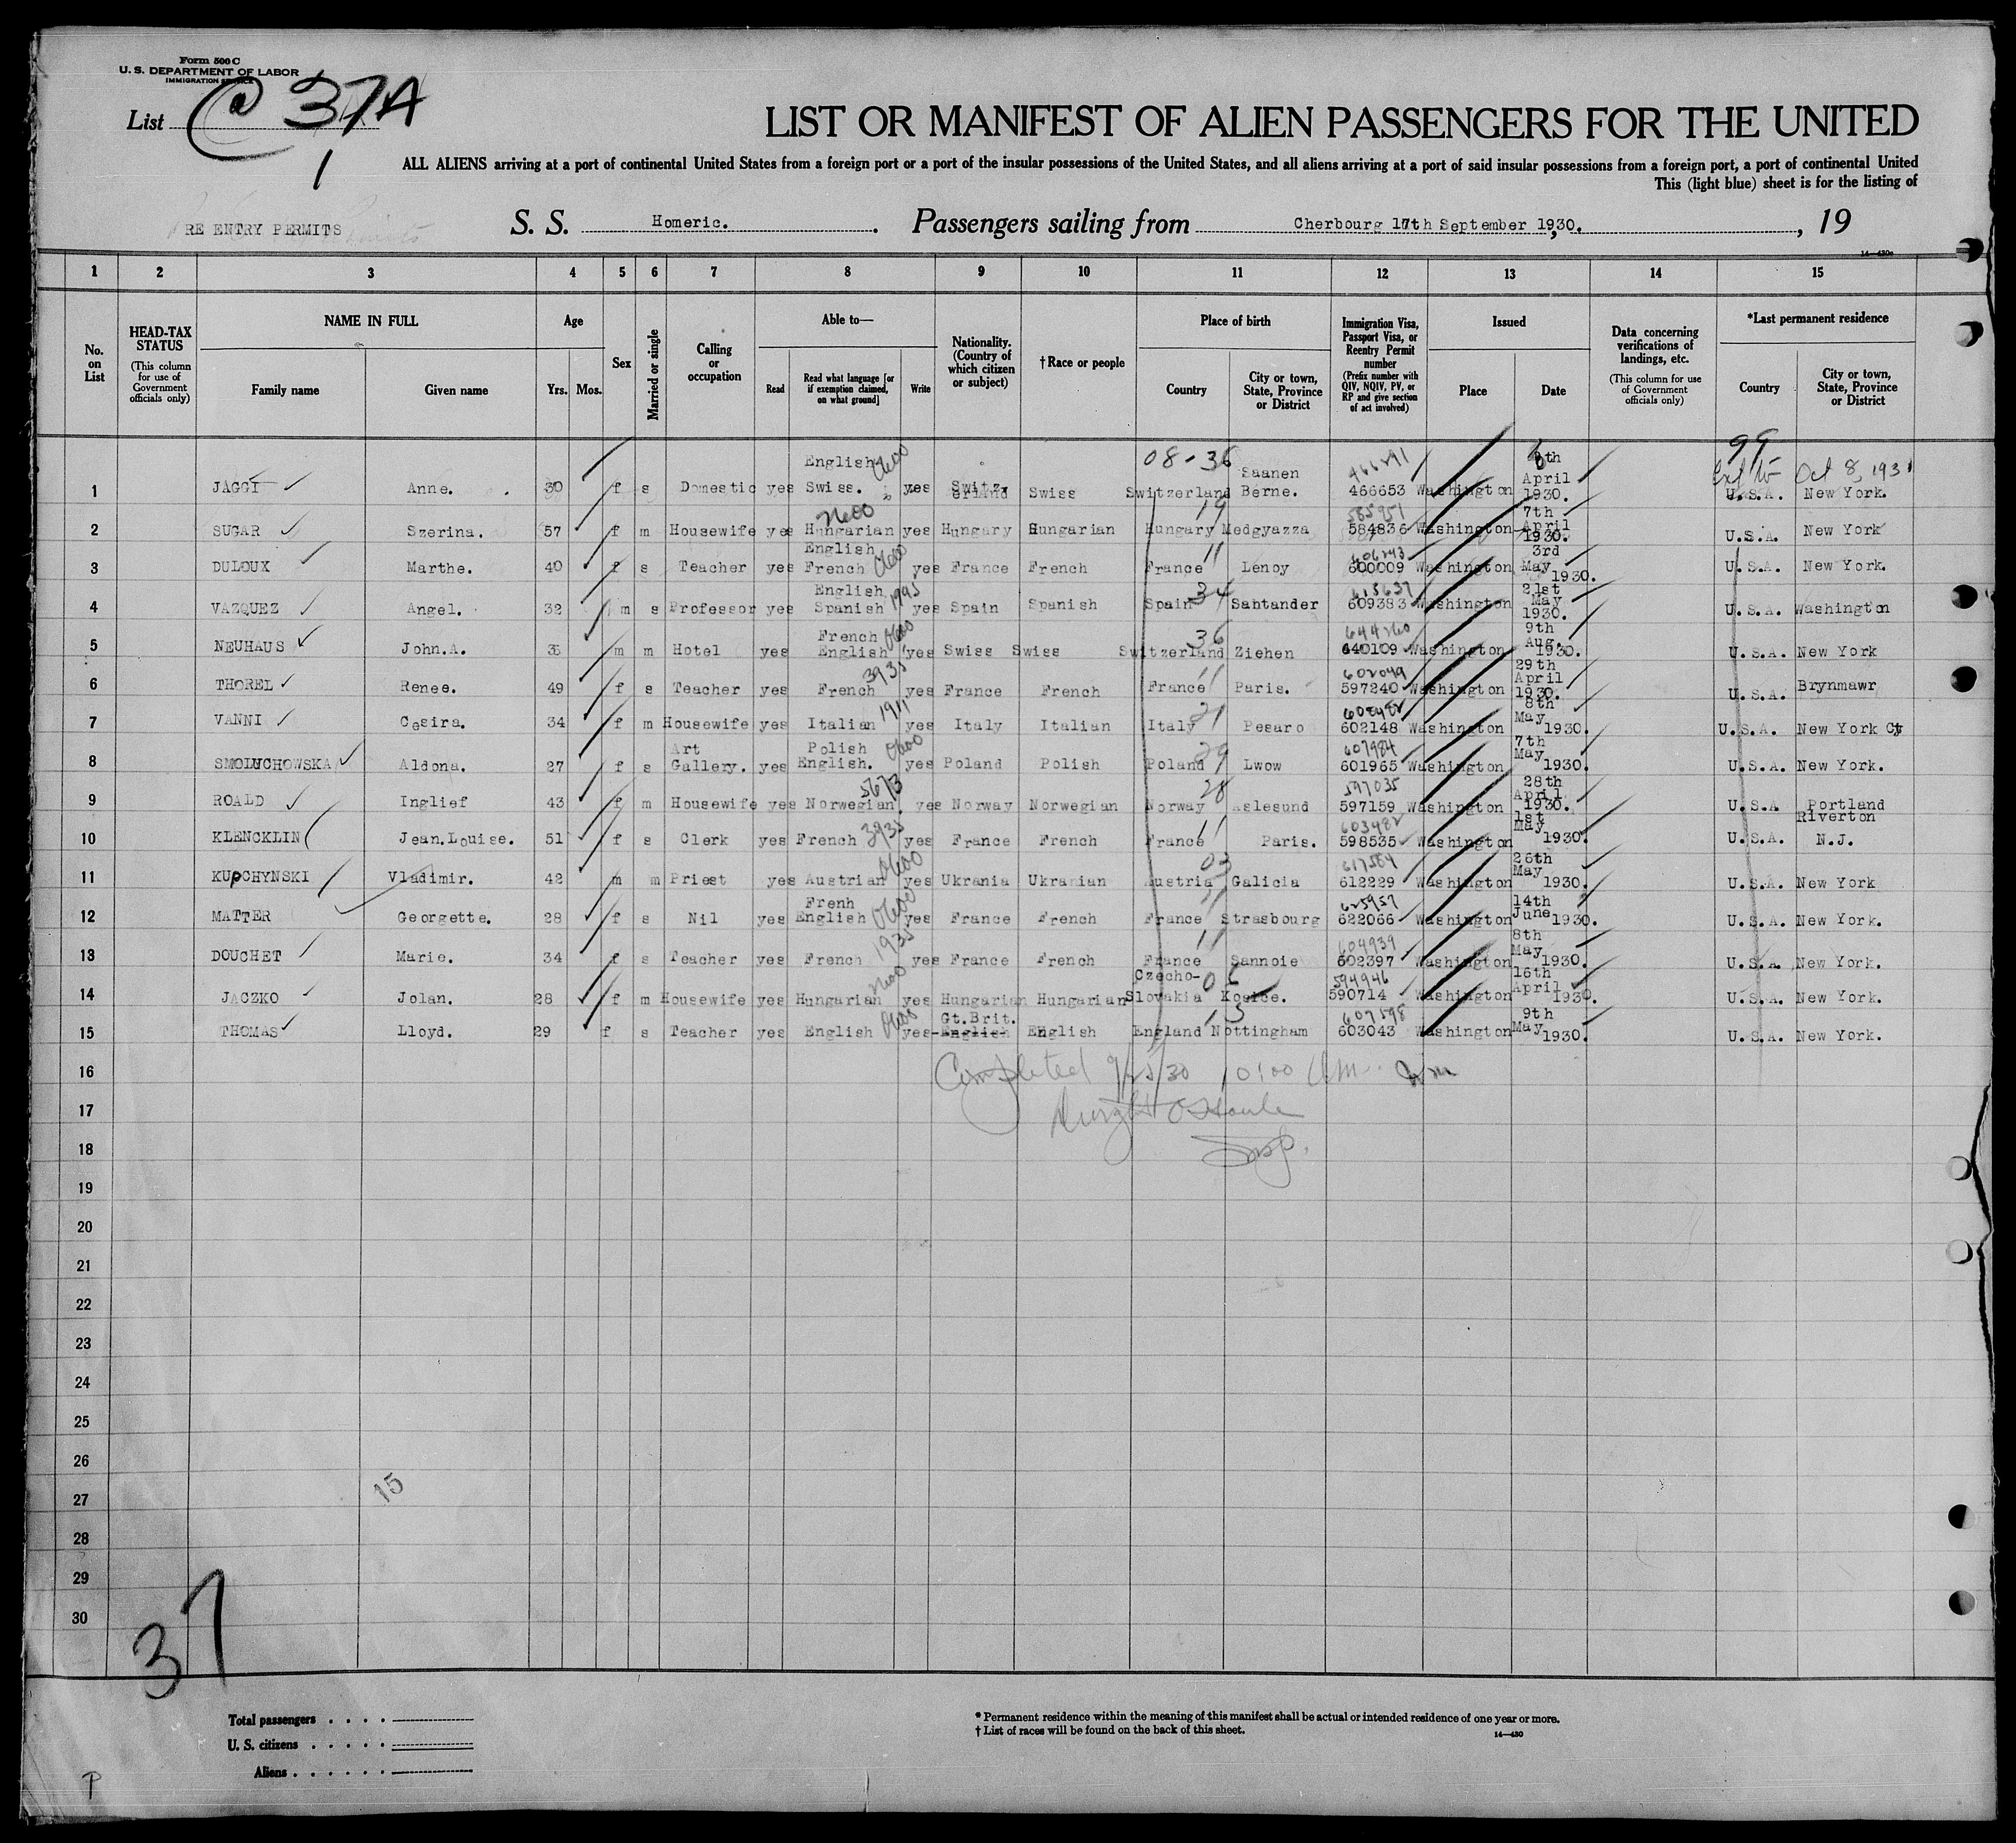 Form 500 C
U. S. DEPARTMENT OF LABOR
IMMIGRATION SERVICE
List 37A
1
LIST OR MANIFEST OF ALIEN PASSENGERS FOR THE UNITED
ALL ALIENS arriving at a port of continental United States from a foreign port or a port of the insular possessions of the United States, and all aliens arriving at a port of said insular possessions from a foreign port, a port of continental United
This (light blue) sheet is for the listing of
RE ENTRY PERMITS S. S. Homeric. Passengers sailing from Cherbourg 17th September 1930. , 19
14—430c
1 2 3 4 5 6 7 8 9 10 11 12 13 14 15
No. on List
HEAD-TAX STATUS (This column for use of Government officials only)
NAME IN FULL Family name Given name
Age Yrs. Mos.
Sex
Married or single
Calling or occupation
Able to— Read Read what language [or if exemption claimed, on what ground] Write
Nationality. (Country of which citizen or subject)
† Race or people
Place of birth Country City or town, State, Province or District
Immigration Visa, Passport Visa, or Reentry Permit number (Prefix number with QIV, NQIV, PV, or RP and give section of act involved)
Issued Place Date
Data concerning verifications of landings, etc. (This column for use of Government officials only)
*Last permanent residence Country City or town, State, Province or District
99
Oct 8, 1931
1 JAGGI Anne. 30 f s Domestic yes English Swiss. 0600 yes Switzerland Swiss 08-36 Switzerland Saanen Berne. 466291 466653 Washington 8th April 1930. U.S.A. New York.
2 SUGAR Szerina. 57 f m Housewife yes Hungarian yes Hungary Hungarian 19 Hungary Medgyazza 585951 584836 Washington 7th April 1930. U.S.A. New York
3 DULOUX Marthe. 40 f s Teacher yes English French 0600 yes France French 11 France Lenoy 606243 600009 Washington 3rd May 1930. U.S.A. New York.
4 VAZQUEZ Angel. 32 m s Professor yes English Spanish 1995 yes Spain Spanish 34 Spain Sabtander 615637 609383 Washington 21st May 1930. U.S.A. Washington
5 NEUHAUS John.A. m m Hotel yes French English 0600 yes Swiss Swiss 36 Switzerland Ziehen 644360 640109 Washington 9th Aug. 1930. U.S.A. New York
6 THOREL Renee. 49 f s Teacher yes French 3935 yes France French 11 France Paris. 602049 597240 Washington 29th April 1930. U.S.A. Brynmawr
7 VANNI Cesira. 34 f m Housewife yes Italian 1911 yes Italy Italian 21 Italy Pesaro 602148 Washington 8th May 1930. U.S.A. New York Cty
8 SMOLUCHOWSKA Aldona. 27 f s Art Gallery. yes Polish English. 0600 yes Poland Polish 29 Poland Lwow 607984 601965 Washington 7th May 1930. U.S.A. New York.
9 ROALD Inglief 43 f m Housewife yes Norwegian. 5673 yes Norway Norwegian 28 Norway Aslesund 597035 597159 Washington 28th April 1930. U.S.A Portland
10 KLENCKLIN Jean.Louise. 51 f s Clerk yes French 3935 yes France French 11 France Paris. 603482 598535 Washington 1st May 1930. U.S.A. Riverton N.J.
11 KUPCHYNSKI Vladimir. 42 m m Priest yes Austrian 0600 yes Ukrania Ukranian 03 Austria Galicia 617584 612229 Washington 26th May 1930. U.S.A. New York
12 MATTER Georgette. 28 f s Nil yes Frenh English 0600 yes France French 11 France Strasbourg 625957 622066 Washington 14th June 1930. U.S.A. New York.
13 DOUCHET Marie. 34 f s Teacher yes French 1935 yes France French 11 France Sannoie 604939 602397 Washington 8th May 1930. U.S.A. New York.
14 JACZKO Jolan. 28 f m Housewife yes Hungarian yes Hungarian Hungarian Czecho-Slovakia Kosice. 594946 590714 Washington 16th April 1930. U.S.A. New York.
15 THOMAS Lloyd. 29 f s Teacher yes English 0600 yes Gt.Brit. English English 13 England Nottingham 607598 603043 Washington 9th May 1930. U.S.A. New York.
16 Completed 9/25/30 10:00 A.M.
17
18 Insp.
19
20
21
22
23
24
25
26
27 15
28
29
30
37
Total passengers . . . .
U. S. citizens . . . . .
Aliens . . . . . .
* Permanent residence within the meaning of this manifest shall be actual or intended residence of one year or more.
† List of races will be found on the back of this sheet.
14—430
P